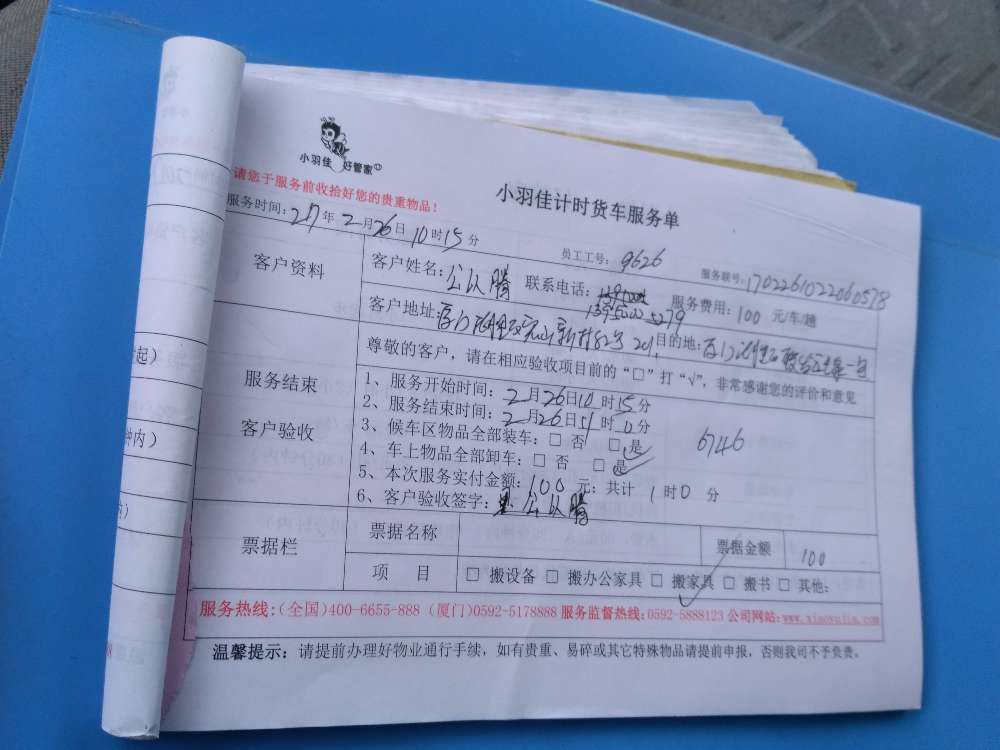 小羽佳 好管家
小羽佳计时货车服务单
请您于服务前收拾好您的贵重物品！
服务时间：17年2月26日10时15分 员工工号：9626 服务联号：1702261022060578
客户资料
客户姓名： 联系电话： 服务费用：100 元/车/趟
客户地址： 目的地：
尊敬的客户，请在相应验收项目前的“□”打“√”，非常感谢您的评价和意见
服务结束
客户验收
1、服务开始时间：2月26日10时15分
2、服务结束时间：2月26日11时0分
6746
3、候车区物品全部装车：□ 否 □ 是
4、车上物品全部卸车：□ 否 □ 是
5、本次服务实付金额：100 元；共计 1时0 分
6、客户验收签字：
票据栏
票据名称 票据金额 100
项 目 □ 搬设备 □ 搬办公家具 □ 搬家具 □ 搬书 □ 其他：
服务热线：（全国）400-6655-888（厦门）0592-5178888 服务监督热线：0592-5888123 公司网站：www.xiaoyujia.com
温馨提示：请提前办理好物业通行手续，如有贵重、易碎或其它特殊物品请提前申报，否则我司不予负责。
起）
钟内）